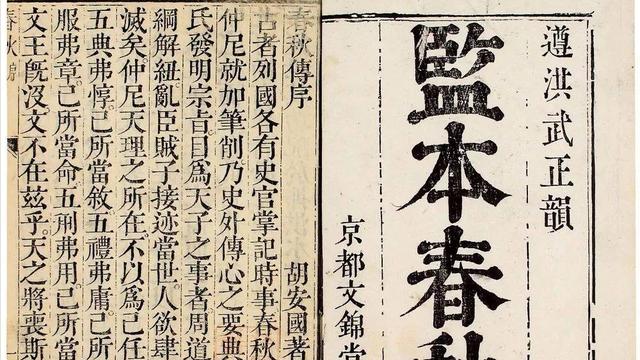 遵洪武正韻
監本春秋
京都文錦堂
春秋傳序 胡安國著
古者列國各有史官掌記時事春秋
仲尼就加筆削乃史外傳心之要典
氏發明宗旨目爲天子之事者周道
綱解紐亂臣賊子接迹當世人欲肆
滅矣。仲尼天理之所在不以爲己任
五典弗惇。己所當敘五禮弗庸。己所
服弗章。己所當命五刑弗用。己所當
文王旣沒文不在茲乎。天之將喪斯
春秋